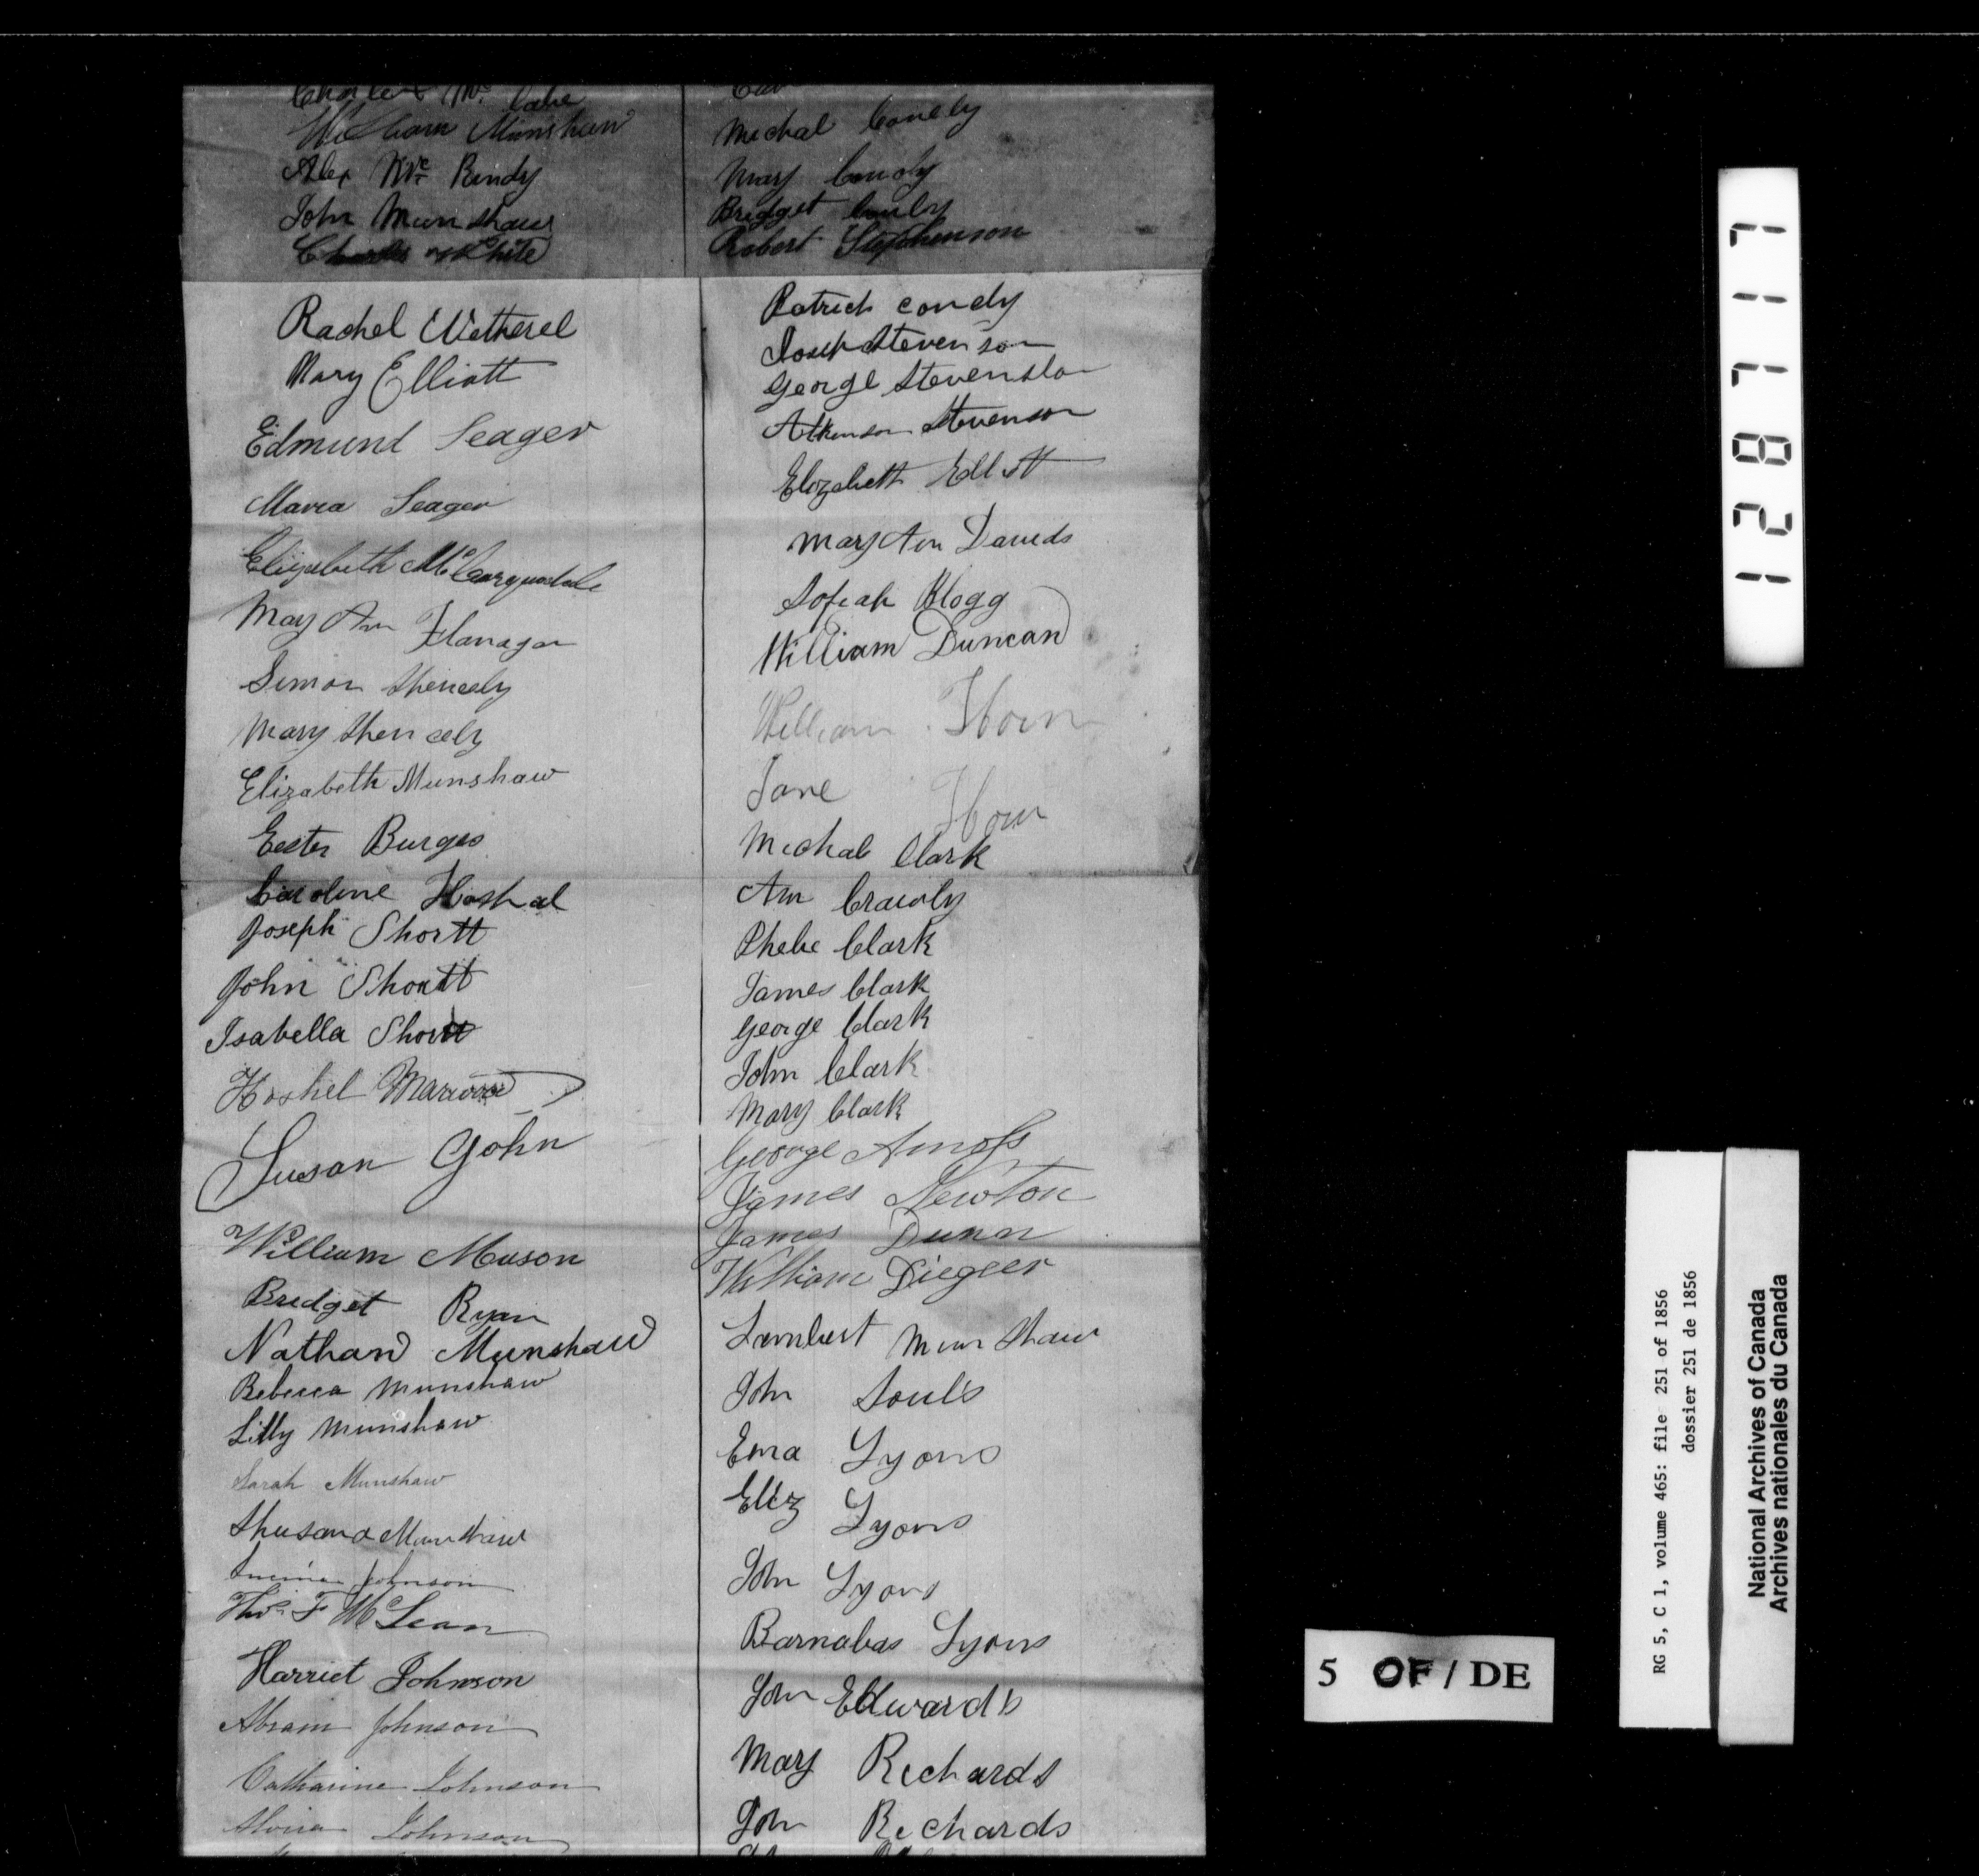 Charles Mc Cabe
William Munshaw
Alex Mc Bendy
John Munshaw
Charles White
Rachel Wetherel
Mary Elliott
Edmund Seager
Maria Seager
Elizabeth
Mary Ann Flanagan
Simon Sheneely
Mary Sheneely
Elizabeth Munshaw
Eester Burges
Caroline Hoshal
Joseph Shortt
John Shortt
Isabella Shortt
Hoshel
Susan John
William Mason
Bridget Ryan
Nathan Munshaw
Rebecca Munshaw
Lilly Munshaw
Sarah Munshaw
Shusana Munshaw
Johnson
Thos F McLean
Harriet Johnson
Abram Johnson
Catharine Johnson
Johnson
Michal Conely
Mary Conoly
Bridget Conly
Robert Stephenson
Patrick Conely
Joseph Stevenson
George Stevenson
Atkinson Stevenson
Elizabeth Elliott
Mary Ann Davids
Sofiah Klogg
William Duncan
William Horn
Jane Horn
Michal Clark
Ann Crawly
Phebe Clark
James Clark
George Clark
John Clark
Mary Clark
George Amoss
James Newton
James Dunn
William Diegeer
Lambert Munshaw
John Souls
Ema Lyons
Eliz Lyons
John Lyons
Barnabas Lyons
John Edwards
Mary Richards
John Richards
117821
5 OF / DE
RG 5, C 1, volume 465: file 251 of 1856
dossier 251 de 1856
National Archives of Canada
Archives nationales du Canada